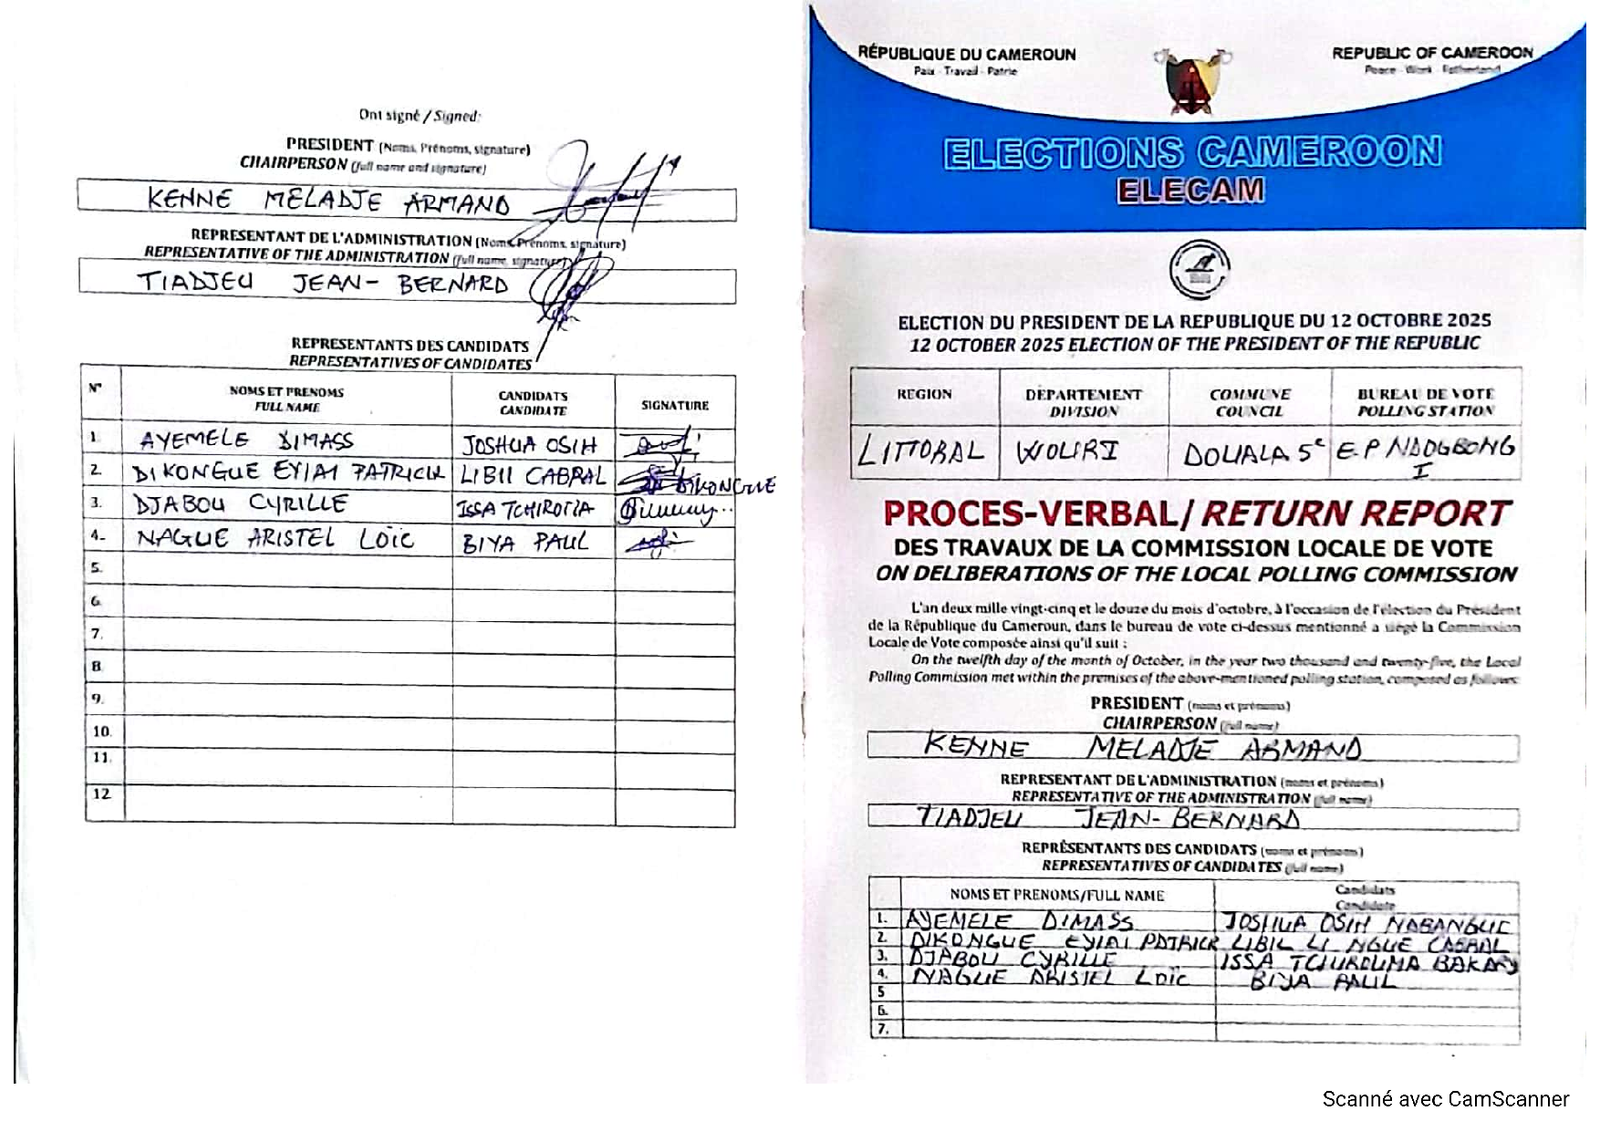 Ont signé / Signed:
PRESIDENT (Noms, Prénoms, signature)
CHAIRPERSON (full name and signature)
KENNE MELADJE ARMAND
REPRESENTANT DE L'ADMINISTRATION (Noms, Prénoms, signature)
REPRESENTATIVE OF THE ADMINISTRATION (full name, signature)
TIADJEU JEAN-BERNARD
REPRESENTANTS DES CANDIDATS
REPRESENTATIVES OF CANDIDATES
N° NOMS ET PRENOMS CANDIDATS SIGNATURE
FULL NAME CANDIDATE
1. AYEMELE DIMASS JOSHUA OSIH
2. DIKONGUE EYIAI PATRICK LIBII CABRAL DIKONGUE
3. DJABOU CYRILLE ISSA TCHIROMA
4. NAGUE ARISTEL LOÏC BIYA PAUL
5.
6.
7.
8
9.
10.
11.
12
RÉPUBLIQUE DU CAMEROUN
Paix - Travail - Patrie
REPUBLIC OF CAMEROON
Peace - Work - Fatherland
ELECTIONS CAMEROON
ELECAM
ELECTION DU PRESIDENT DE LA REPUBLIQUE DU 12 OCTOBRE 2025
12 OCTOBER 2025 ELECTION OF THE PRESIDENT OF THE REPUBLIC
REGION DÉPARTEMENT COMMUNE BUREAU DE VOTE
DIVISION COUNCIL POLLING STATION
LITTORAL WOURI DOUALA 5e E.P NDOGBONG
I
PROCES-VERBAL/ RETURN REPORT
DES TRAVAUX DE LA COMMISSION LOCALE DE VOTE
ON DELIBERATIONS OF THE LOCAL POLLING COMMISSION
L'an deux mille vingt-cinq et le douze du mois d'octobre, à l'occasion de l'élection du Président
de la République du Cameroun, dans le bureau de vote ci-dessus mentionné a siégé la Commission
Locale de Vote composée ainsi qu'il suit :
On the twelfth day of the month of October, in the year two thousand and twenty-five, the Local
Polling Commission met within the premises of the above-mentioned polling station, composed as follows:
PRESIDENT (noms et prénoms)
CHAIRPERSON (full name)
KENNE MELADJE ARMAND
REPRESENTANT DE L'ADMINISTRATION (noms et prénoms)
REPRESENTATIVE OF THE ADMINISTRATION (full name)
TIADJEU JEAN-BERNARD
REPRÉSENTANTS DES CANDIDATS (noms et prénoms)
REPRESENTATIVES OF CANDIDATES (full name)
NOMS ET PRENOMS/FULL NAME Candidats
Candidate
1. AYEMELE DIMASS JOSHUA OSIH NABANGUE
2. DIKONGUE EYIAI PATRICK LIBII LI NGUE CABRAL
3. DJABOU CYRILLE ISSA TCHIROUMA BAKARY
4. NAGUE ARISTEL LOÏC BIYA PAUL
5
6.
7.
Scanné avec CamScanner